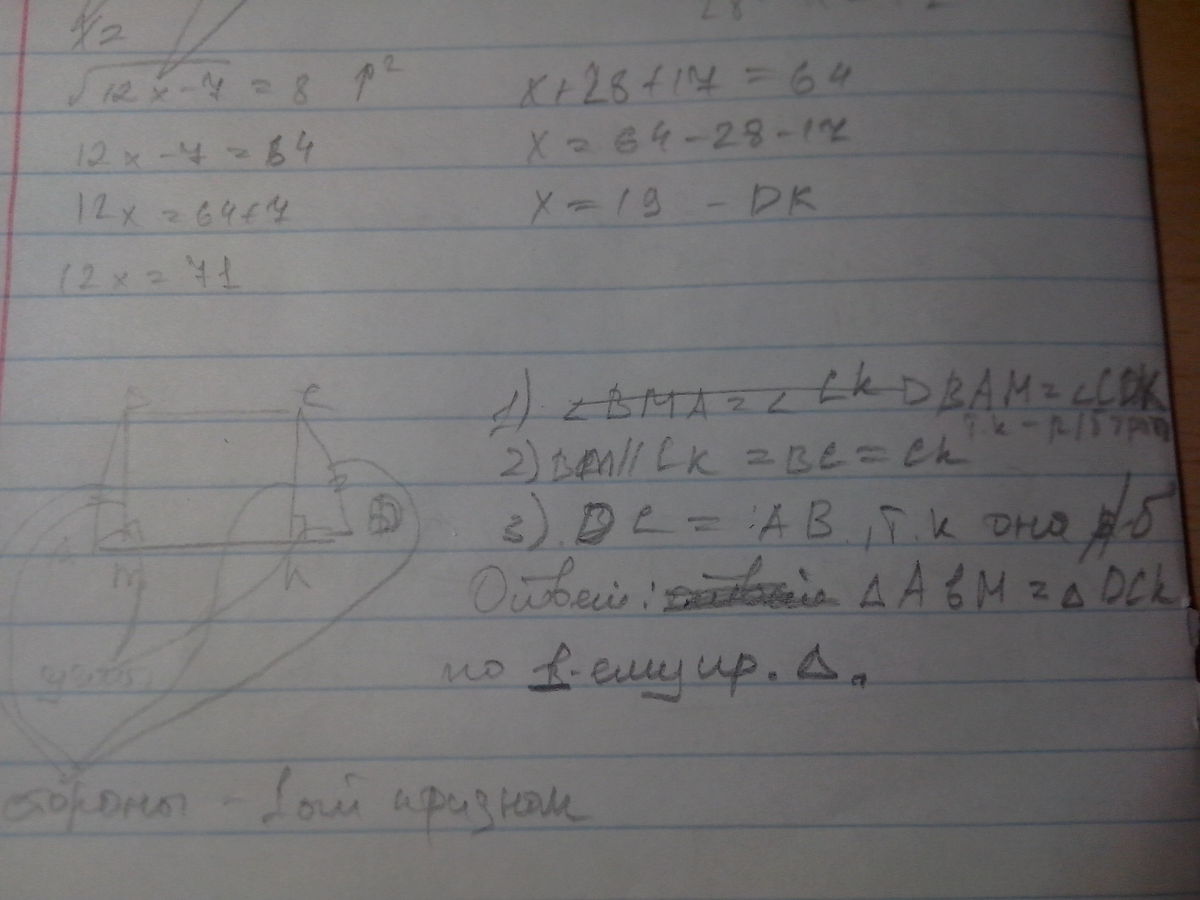 x=
√12x-7 = 8 ↑²
12x-7=64
12x = 64+7
12x = 71
x+28+17=64
x=64-28-17
x=19 - DK
C
A
D
m
k
1) <BMA=< CkD BAM=<CDK
т.к - р/б трап
2) BM//Ck = BC=Ck
3). DC = AB, т.к она р/б
Ответ: ΔABM=ΔDCk
по 1-ему пр. Δ.
стороны - 1ый признак